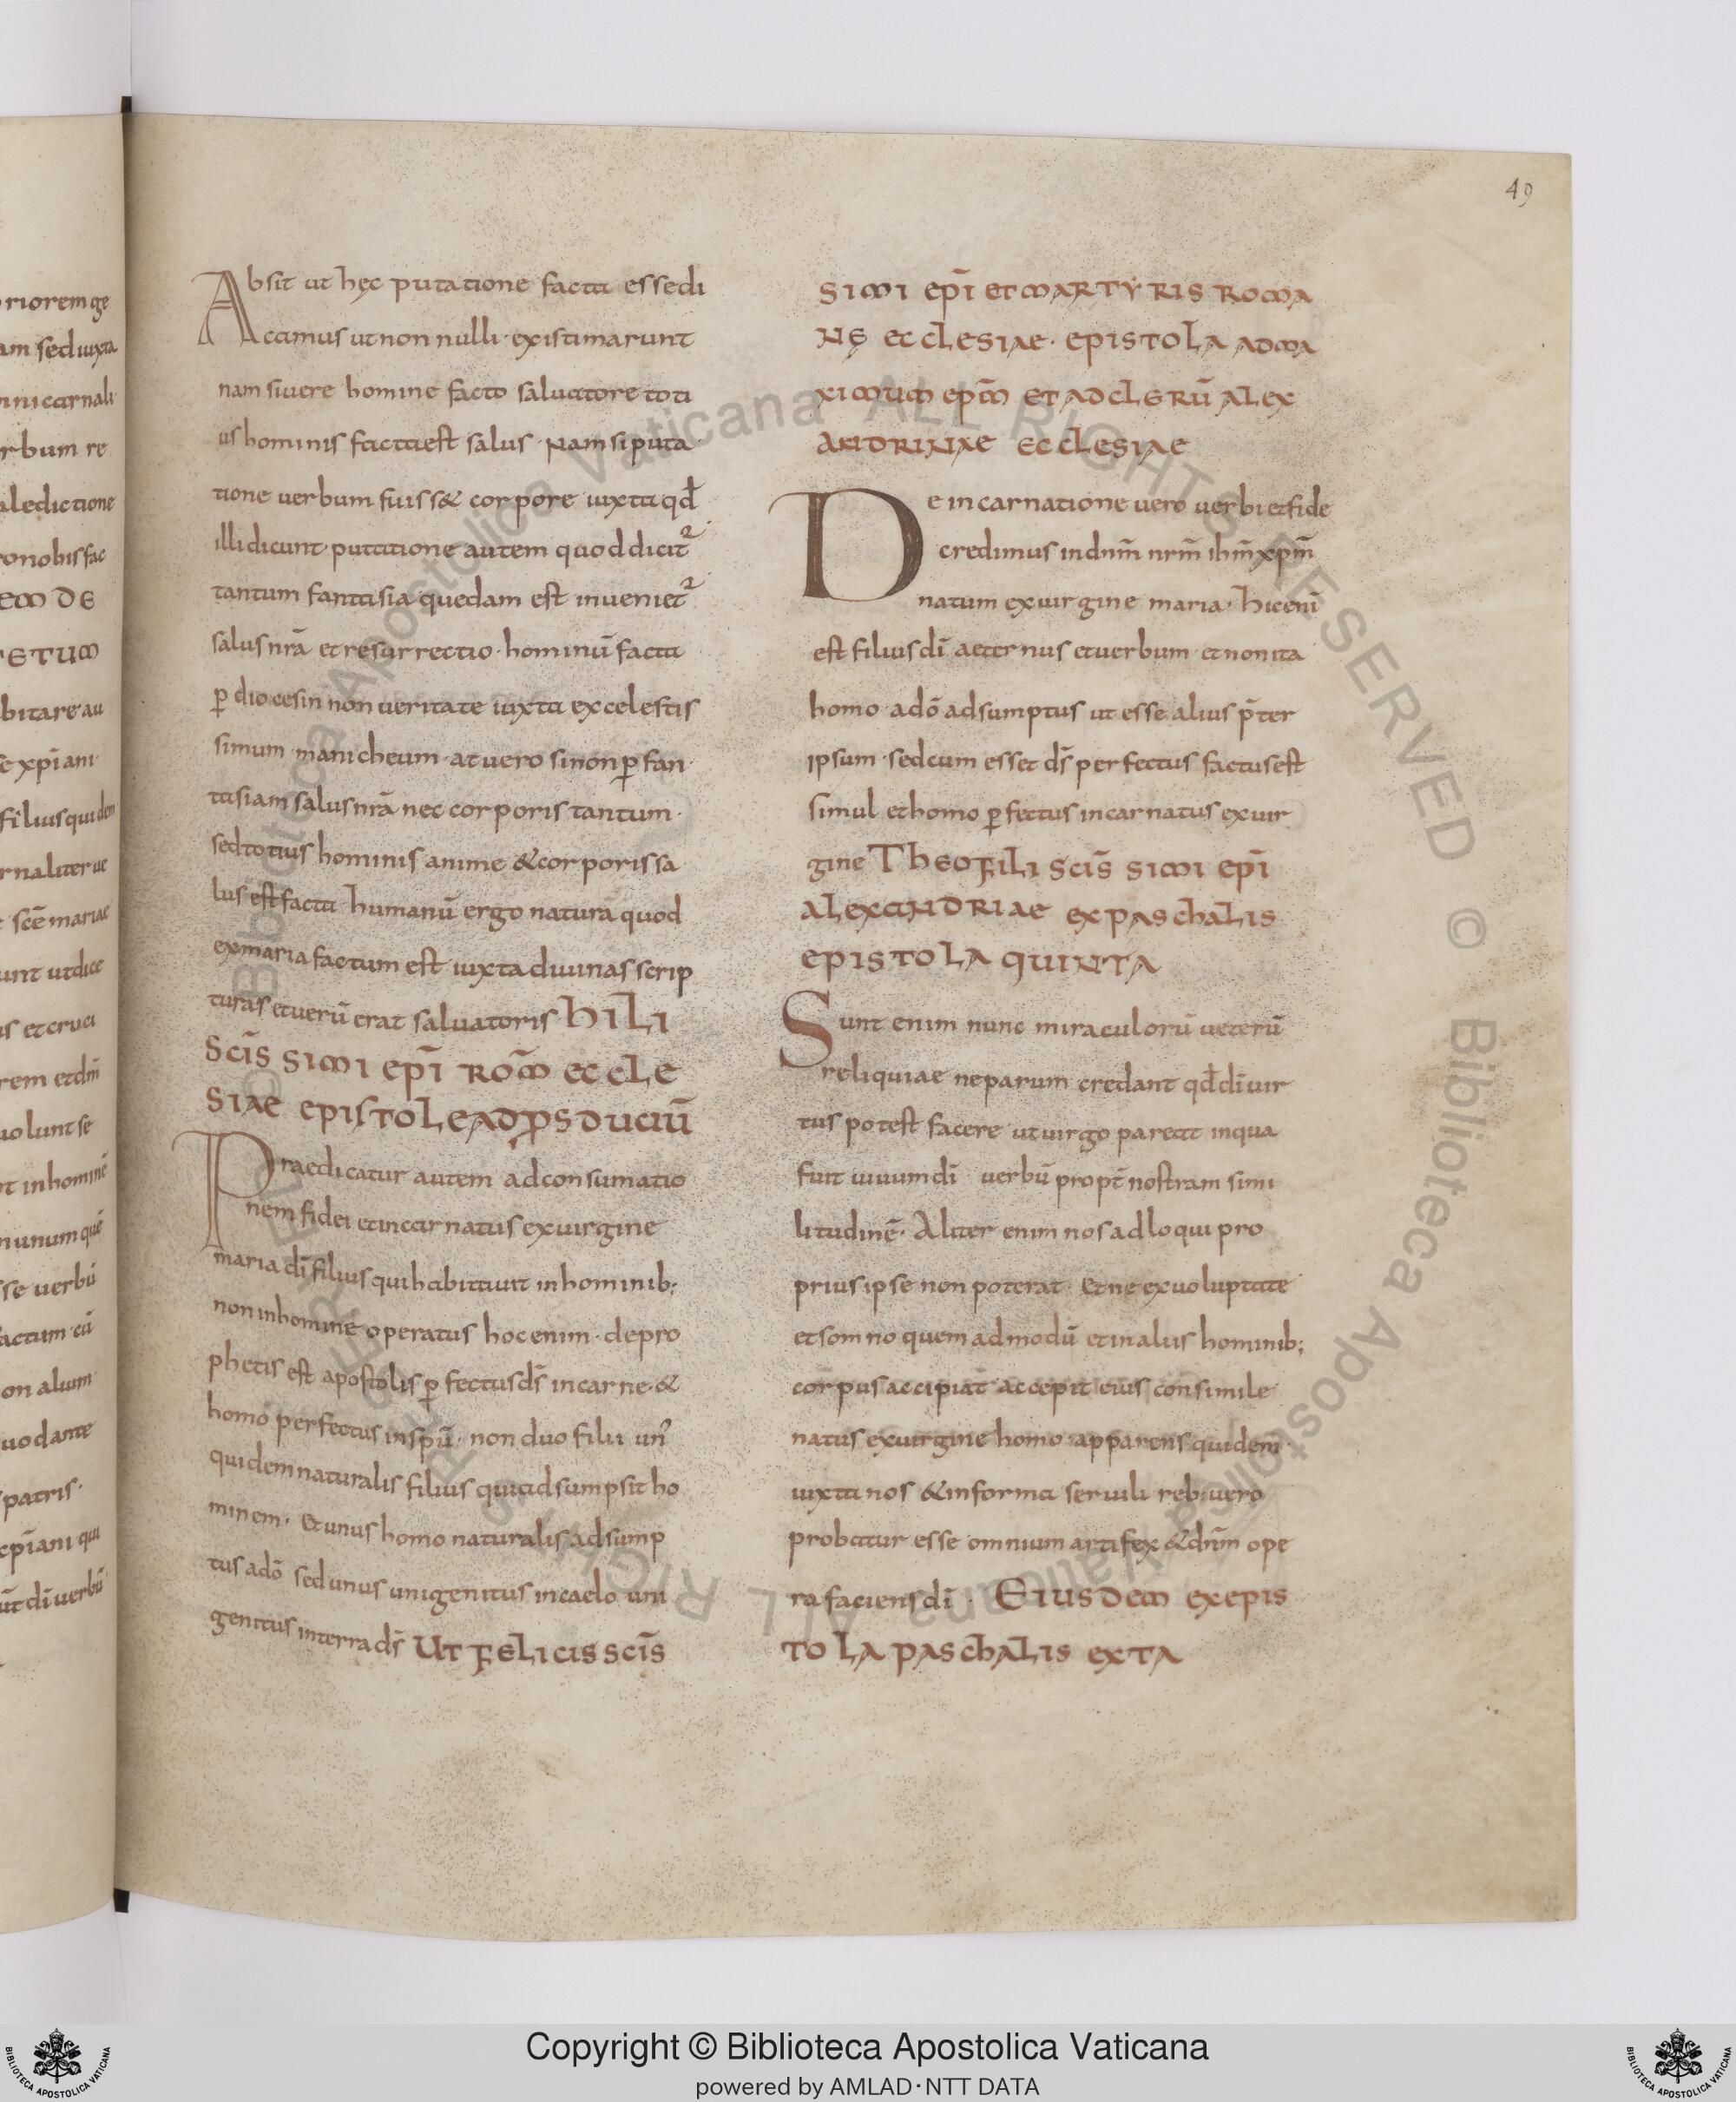 49
riorem ge
am sed iuxta
nni carnali
rbum re
aledictione
ronobis fac
bitare au
e xp̄iani
filius qui dem
rnaliter ue
scē mariae
unt ut dice
s et cruci
rem et dm̄
uolunt se
t in hominē
unum quē
se uerbū
actum cū
on alium
uod ante
patris·
xp̄iani qui
ūt dī uerbū
Absit ut hęc putatione facta esse di
Accimus ut non nulli· existimarunt
nam si uere homine facto saluatore toti
us hominis facta est salus· Nam si puta
tione uerbum fuiss& corpore iuxta qđ
illi dicunt putatione autem quod dicit᷑
tantum fantasia quedam est inueniet᷑
salus nrā et resurrectio· hominū facta
ꝑ diocesin non ueritate iuxta excelestis
simum manicheum· at uero si non ꝑ fan·
tasiam salus nrā nec corporis tantum·
sed totius hominis anime & corporis sa
lus est facta humanū ergo naturā quod
ex maria factum est iuxta diuinas scrip
turas et uerū erat saluatoris hili
scīs simi epī Rom̄ eccle
siae epistole ad ꝑs duciū
Praedicatur autem ad consumatio
nem fidei et incarnatus ex uirgine
maria dī filius qui habitauit in hominib;
non in homine operatus hoc enim· de pro
phetis est apostolis ꝑfectus ds̄ in carne·&
homo perfectus in spū· non duo filii un᾽
quidem naturalis filius qui adsumpsit ho
minem· Et unus homo naturalis adsump
tus adō sed unus unigenitus in caelo uni
genitus in terra ds̄ Ut felicis scīs
simi epī et martyris Roma
nę ecclesiae· epistola ad ma
ximum epm̄ et ad clerū alex
andrinae ecclesiae
De incarnatione uero uerbi et fide
credimus in dnm̄ nrm̄ ihm̄ xpm̄
natum ex uirgine maria· hic enī
est filius dī aeternus et uerbum et non ita
homo adō adsumptus ut esse alius p̄ter
ipsum· sed cum esset ds̄ perfectus factus est
simul et homo ꝑfectus incarnatus ex uir
gine Theofili scīs simi epī
alexandriae ex paschalis
epistola quinta
Sunt enim nunc miraculorū ueterū
reliquiae ne parum credant qđ dī uir
tus potest facere ut uirgo pareat in qua
fuit uiuum dī uerbū propt̄ nostram simi
litudinē· Aliter enim nos adloqui pro
prius ipse non poterat· Et ne ex uoluptate
et somno quem admodū et in aliis hominib;
corpus accipiat accepit eius consimile
natus ex uirgine homo apparens quidem
iuxta nos & in forma seruili reb; uero
probatur esse omnium artifex & dnm̄ ope
ra faciens dī· Eiusdem ex epis
tola paschalis exta
Copyright © Biblioteca Apostolica Vaticana
powered by AMLAD·NTT DATA